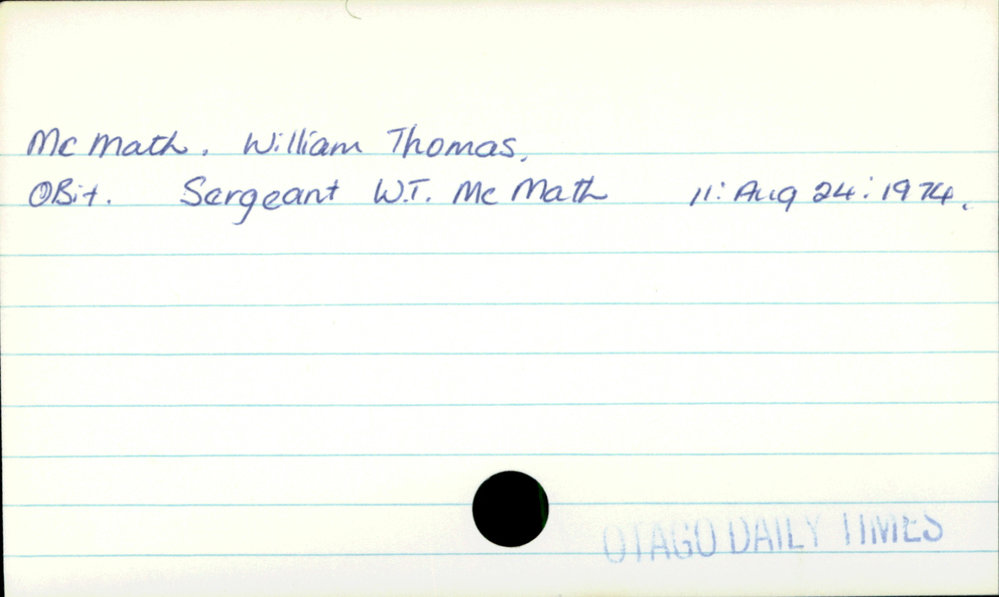 McMath. William Thomas.
OBit. Sergeant W.T. McMath 11: Aug 24: 1974.
OTAGO DAILY TIMES